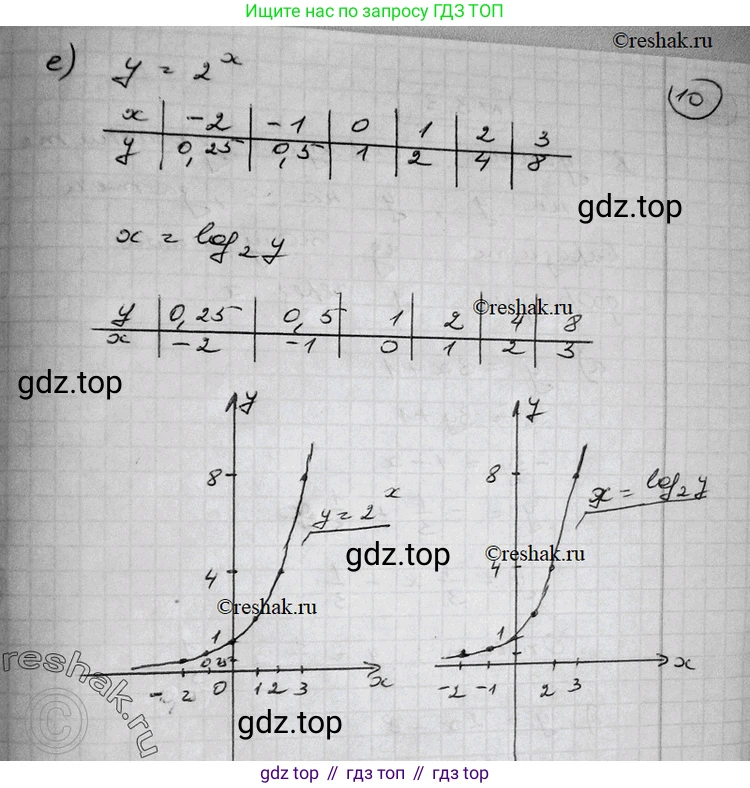 Ищите нас по запросу ГДЗ ТОП
©reshak.ru
е) y = 2^x
10
x | -2 | -1 | 0 | 1 | 2 | 3
y | 0,25 | 0,5 | 1 | 2 | 4 | 8
gdz.top
x = log₂y
©reshak.ru
y | 0,25 | 0,5 | 1 | 2 | 4 | 8
x | -2 | -1 | 0 | 1 | 2 | 3
gdz.top
y
y
8
8
y = 2^x
x = log₂y
gdz.top
©reshak.ru
4
4
©reshak.ru
1
1
0,25
reshak.ru
©
-2 0 1 2 3 x
-2 -1 2 3 x
gdz.top
gdz.top // гдз топ // gdz.top